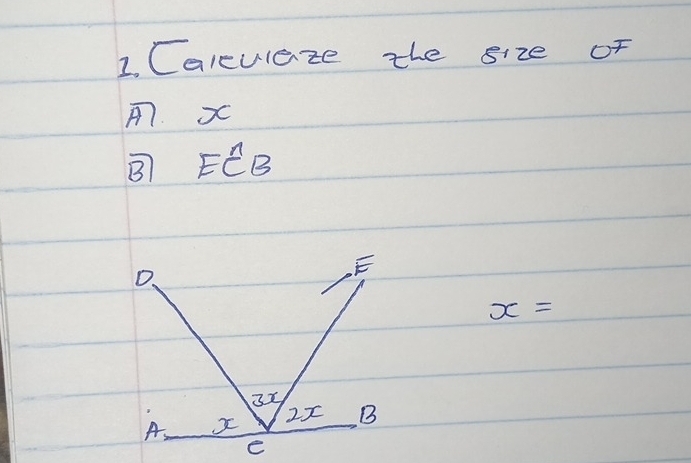 1. Calculaze the size of
A) x
B) EĈB
D E
x =
3x
A x 2x B
C